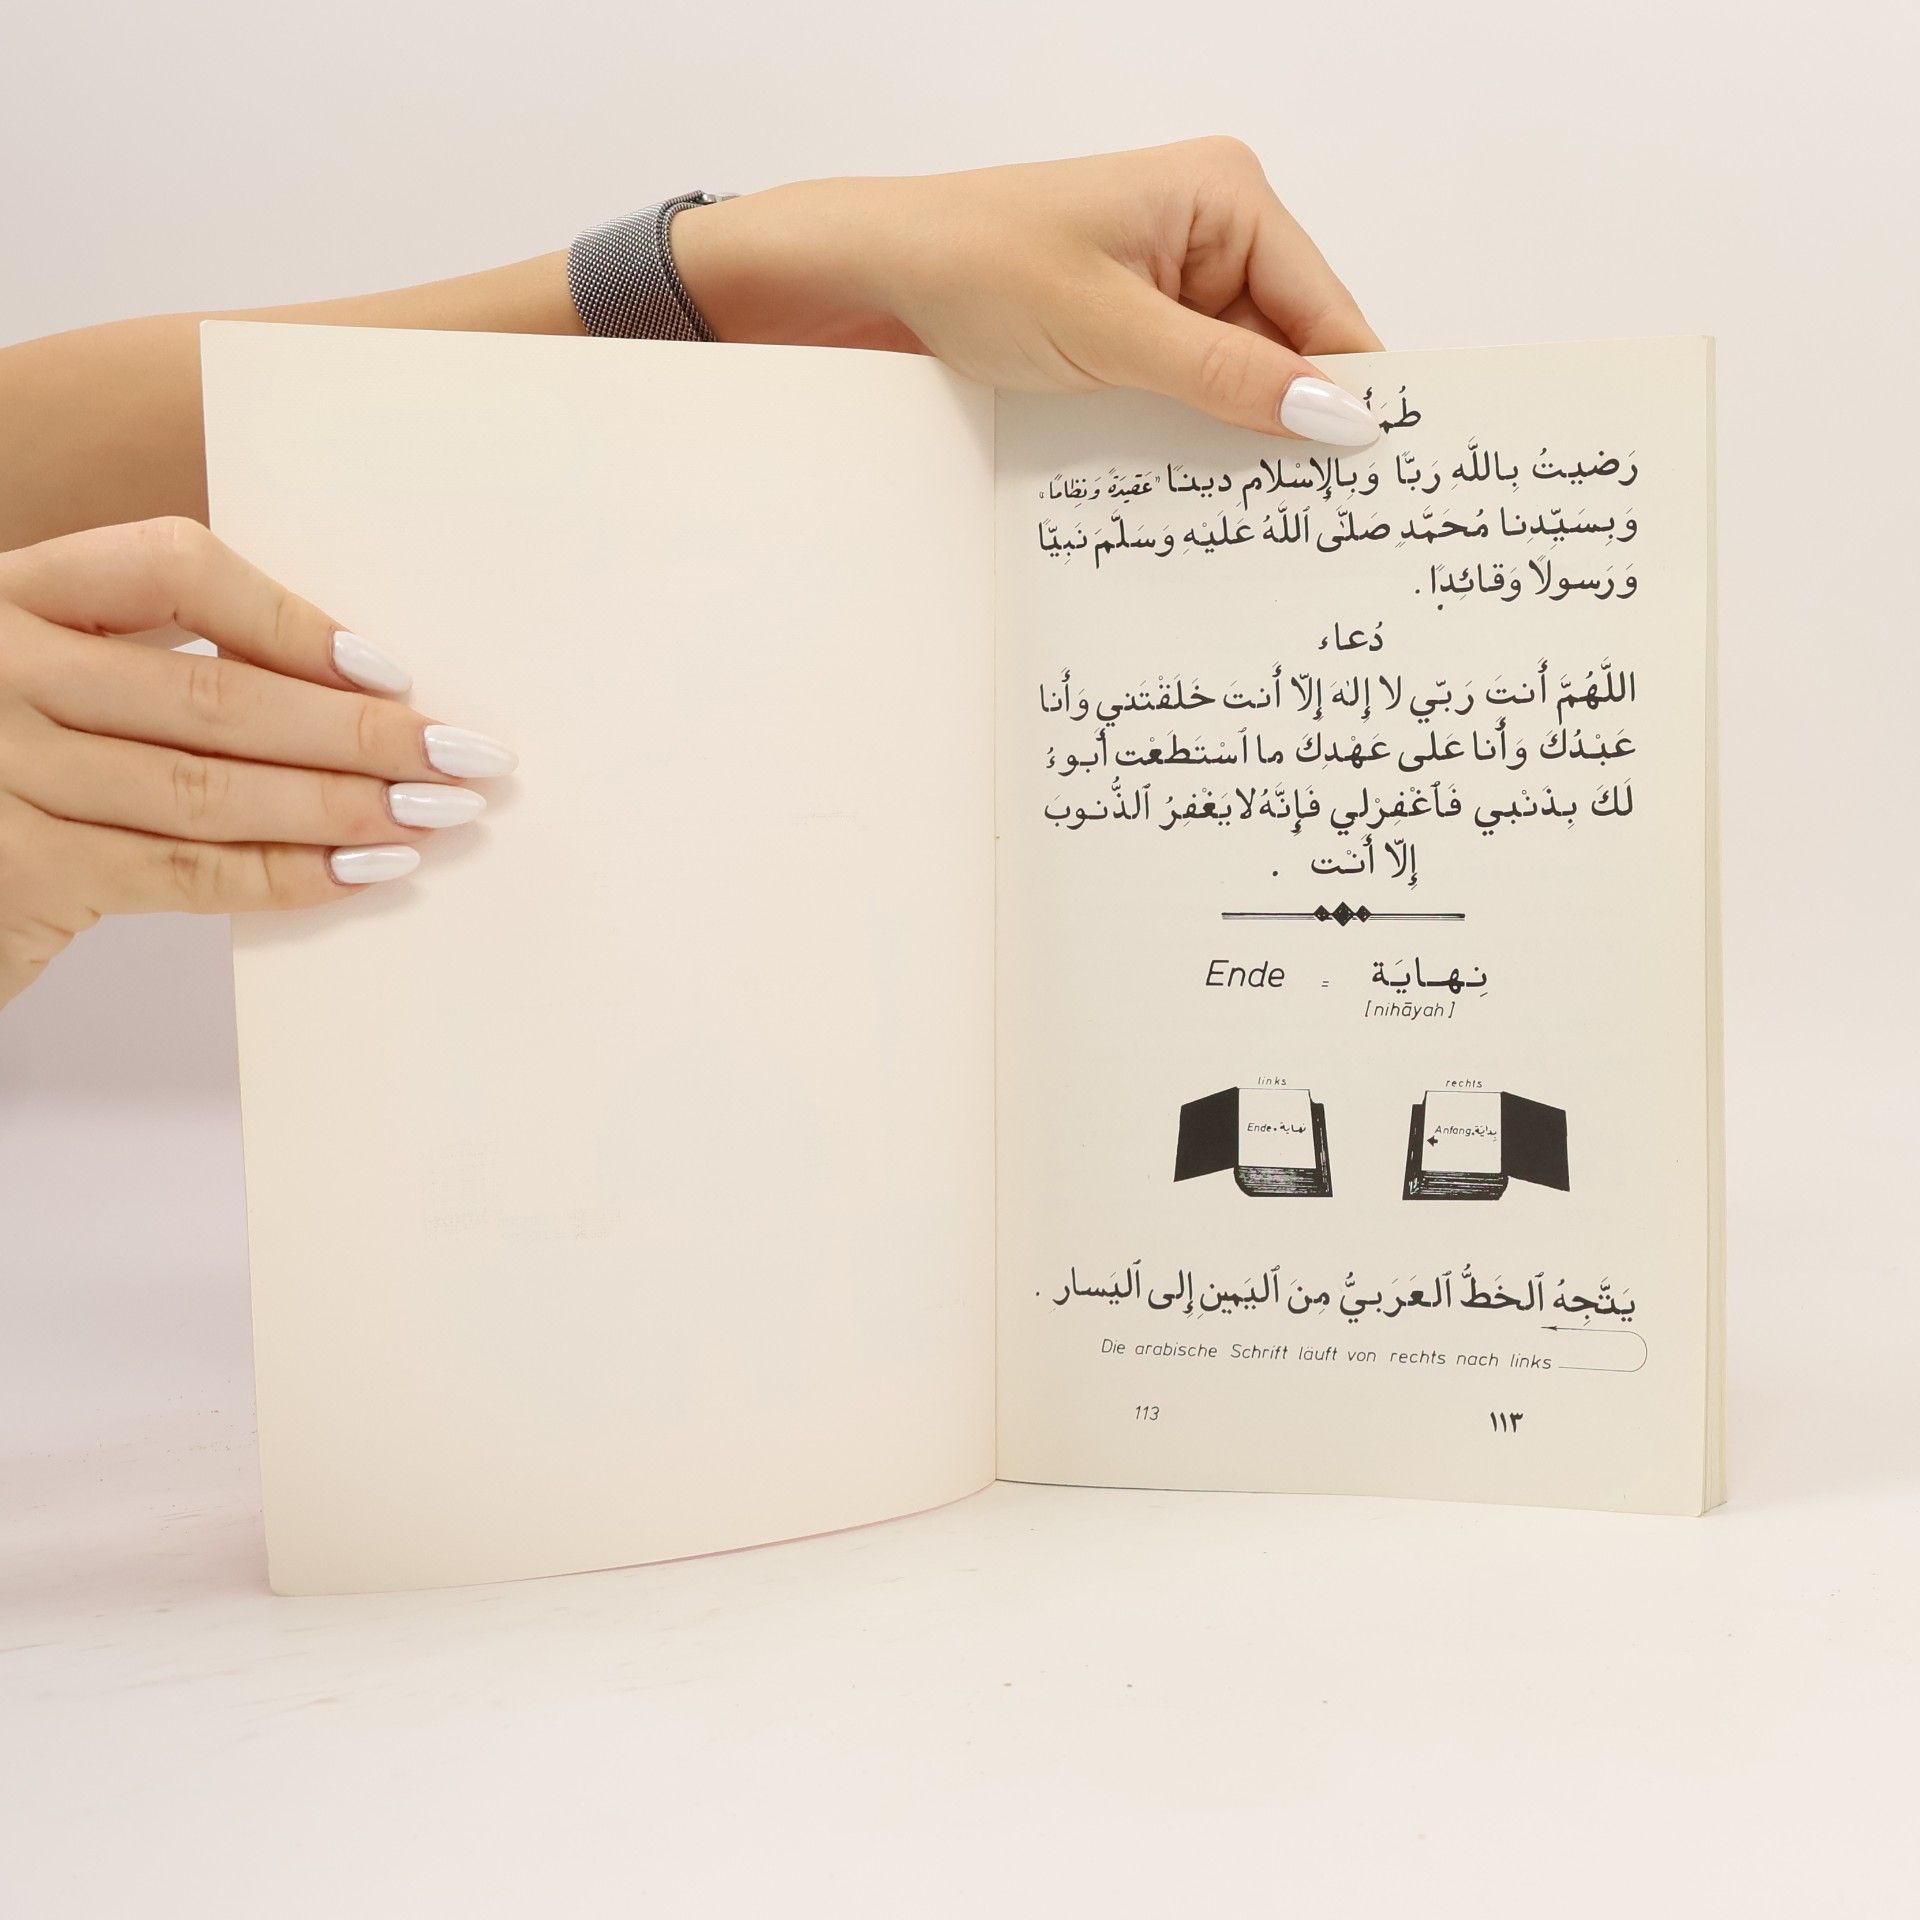 رَضيتُ بِاللَّهِ رَبًّا وَبِالإِسْلامِ دينًا "عَقيدَةً وَنِظامًا"
وَبِسَيِّدِنا مُحَمَّدٍ صَلَّى ٱللَّهُ عَلَيْهِ وَسَلَّمَ نَبِيًّا
وَرَسولًا وَقائِدًا .
دُعاء
اللَّهُمَّ أَنتَ رَبّي لا إِلٰهَ إِلّا أَنتَ خَلَقْتَني وَأَنا
عَبْدُكَ وَأَنا عَلى عَهْدِكَ ما ٱسْتَطَعْت أَبوءُ
لَكَ بِذَنْبي فَٱغْفِرْلي فَإِنَّهُ لا يَغْفِرُ ٱلذُّنوبَ
إِلّا أَنْت .
Ende = نِهايَة
[nihāyah]
links rechts
Ende = نهاية Anfang = بِدايَة
يَتَّجِهُ ٱلخَطُّ ٱلعَرَبيُّ مِنَ ٱليَمينِ إِلى ٱليَسارِ .
Die arabische Schrift läuft von rechts nach links
113 ١١٣